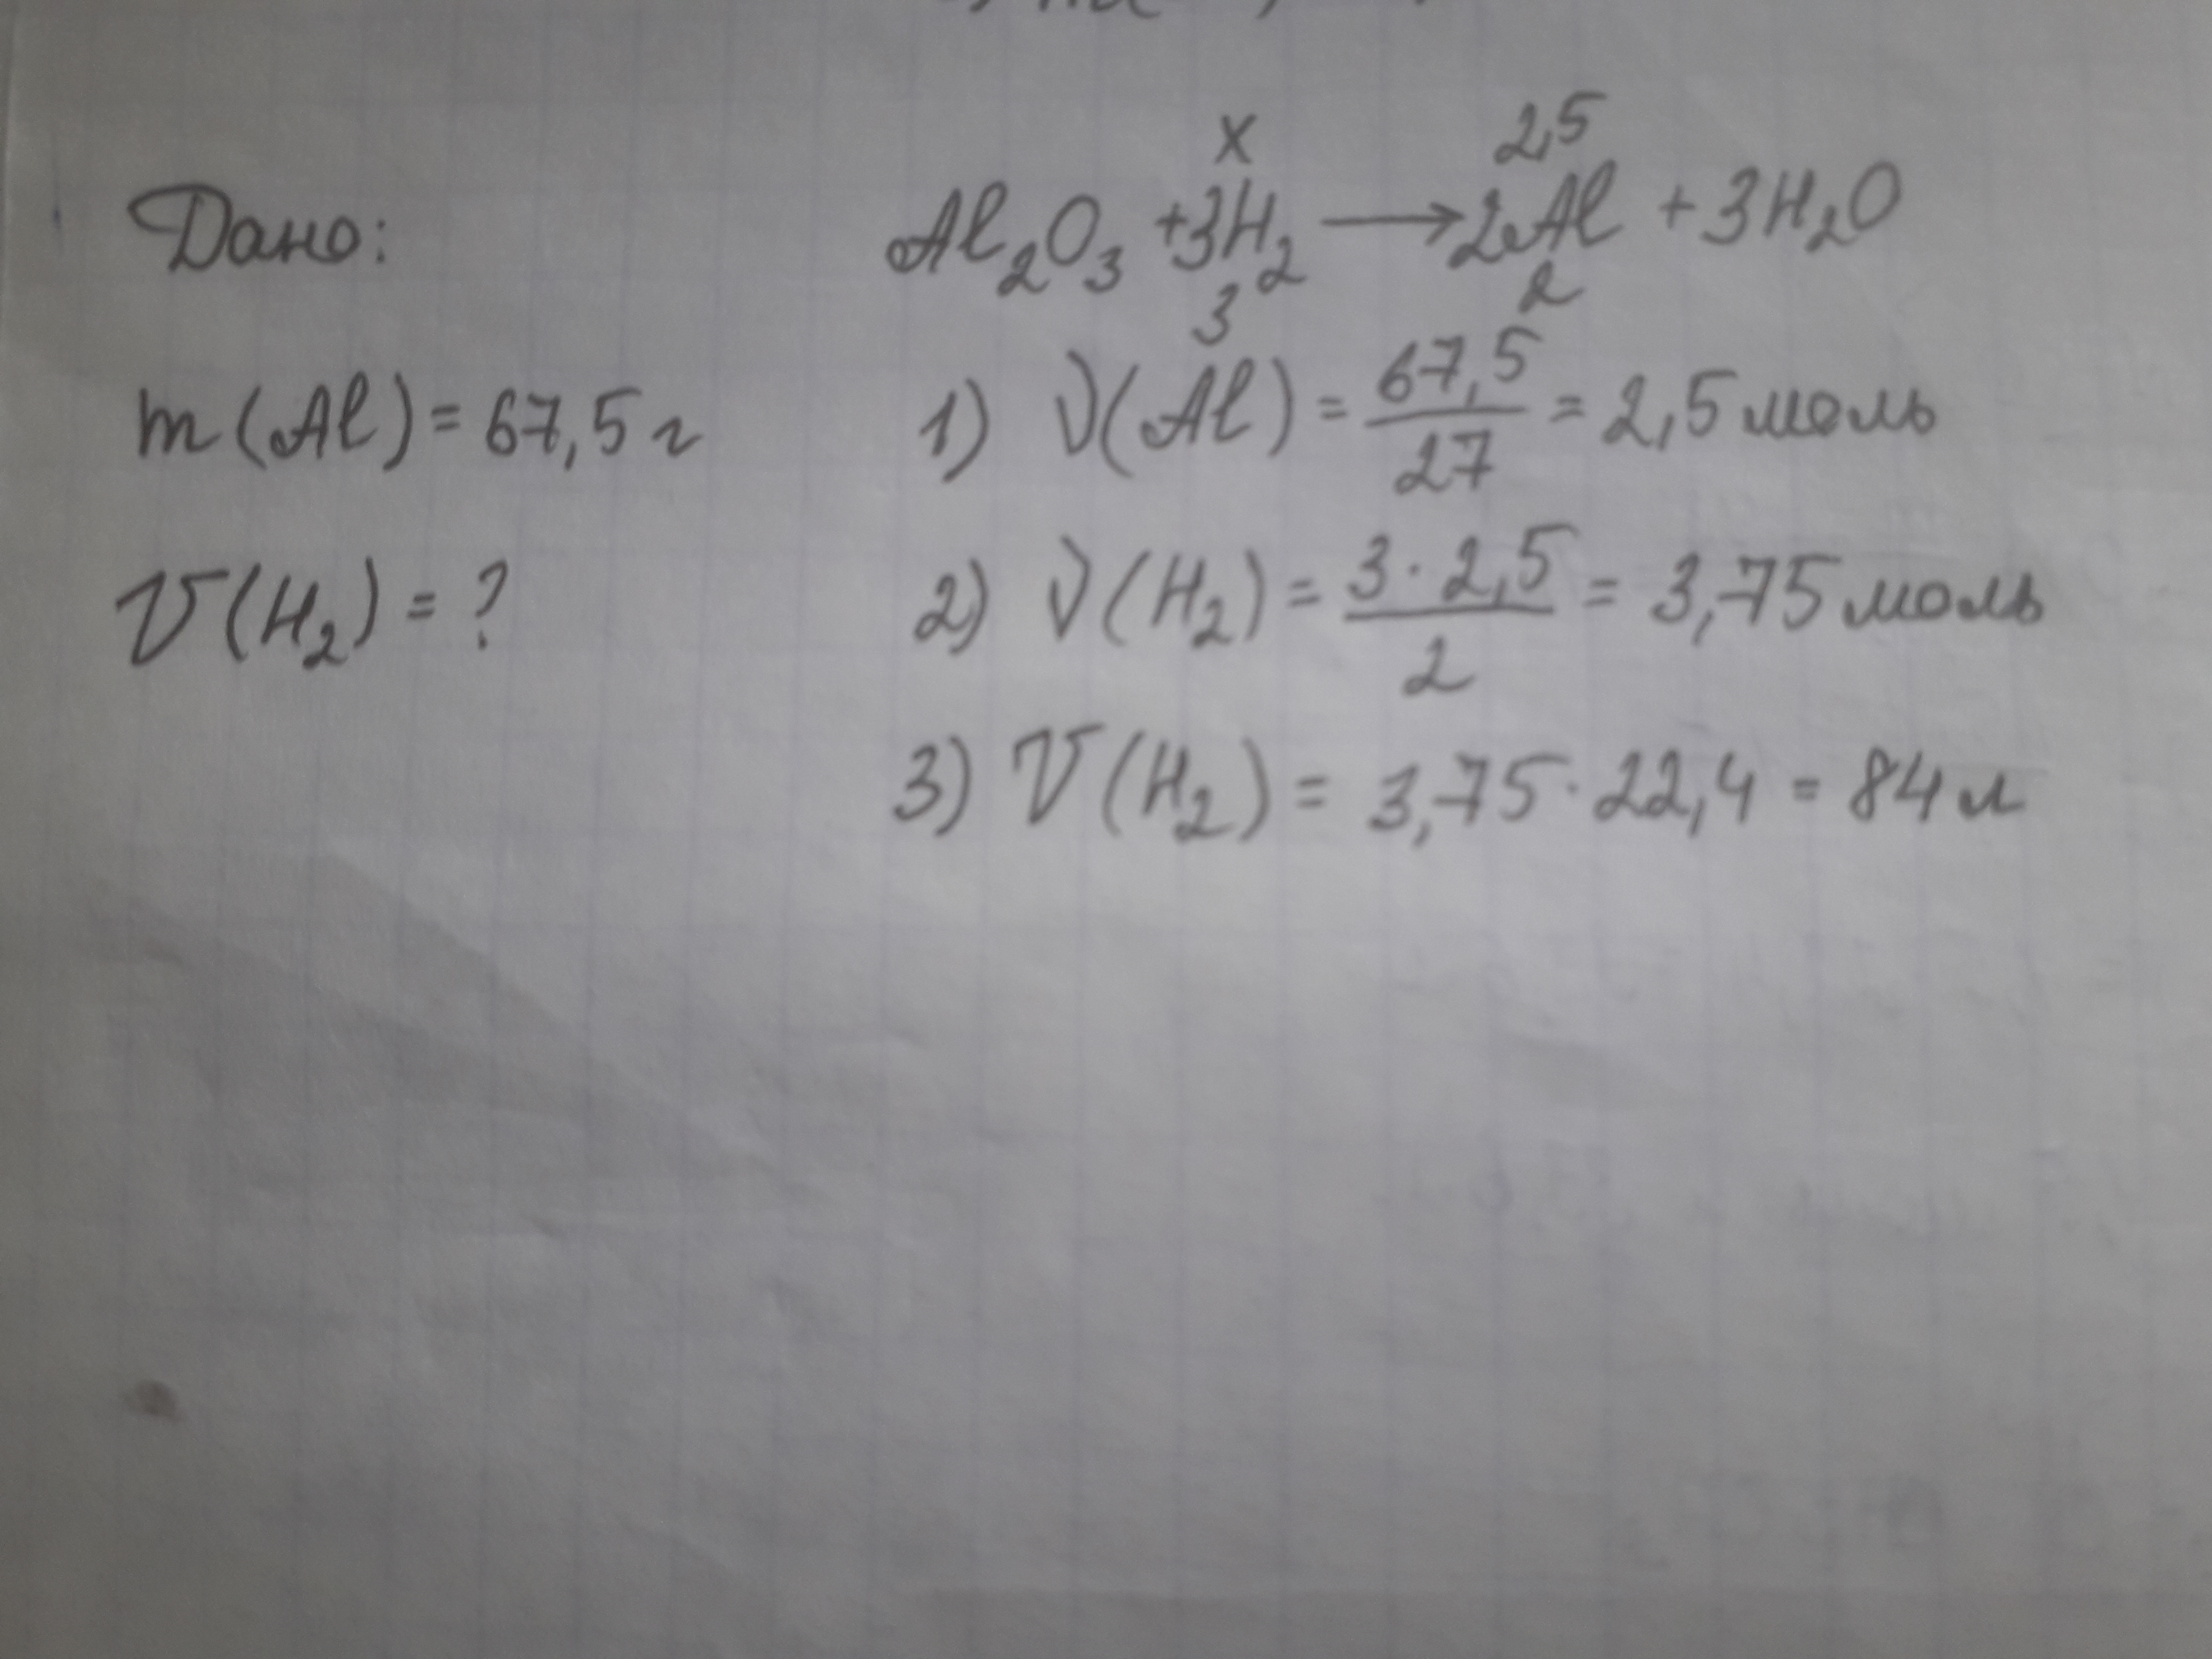 Дано:
m(Al) = 67,5 г
V(H₂) = ?
x 2,5
Al₂O₃ + 3H₂ ⟶ 2Al + 3H₂O
3 2
1) ν(Al) = 67,5/27 = 2,5 моль
2) ν(H₂) = 3 · 2,5/2 = 3,75 моль
3) V(H₂) = 3,75 · 22,4 = 84 л